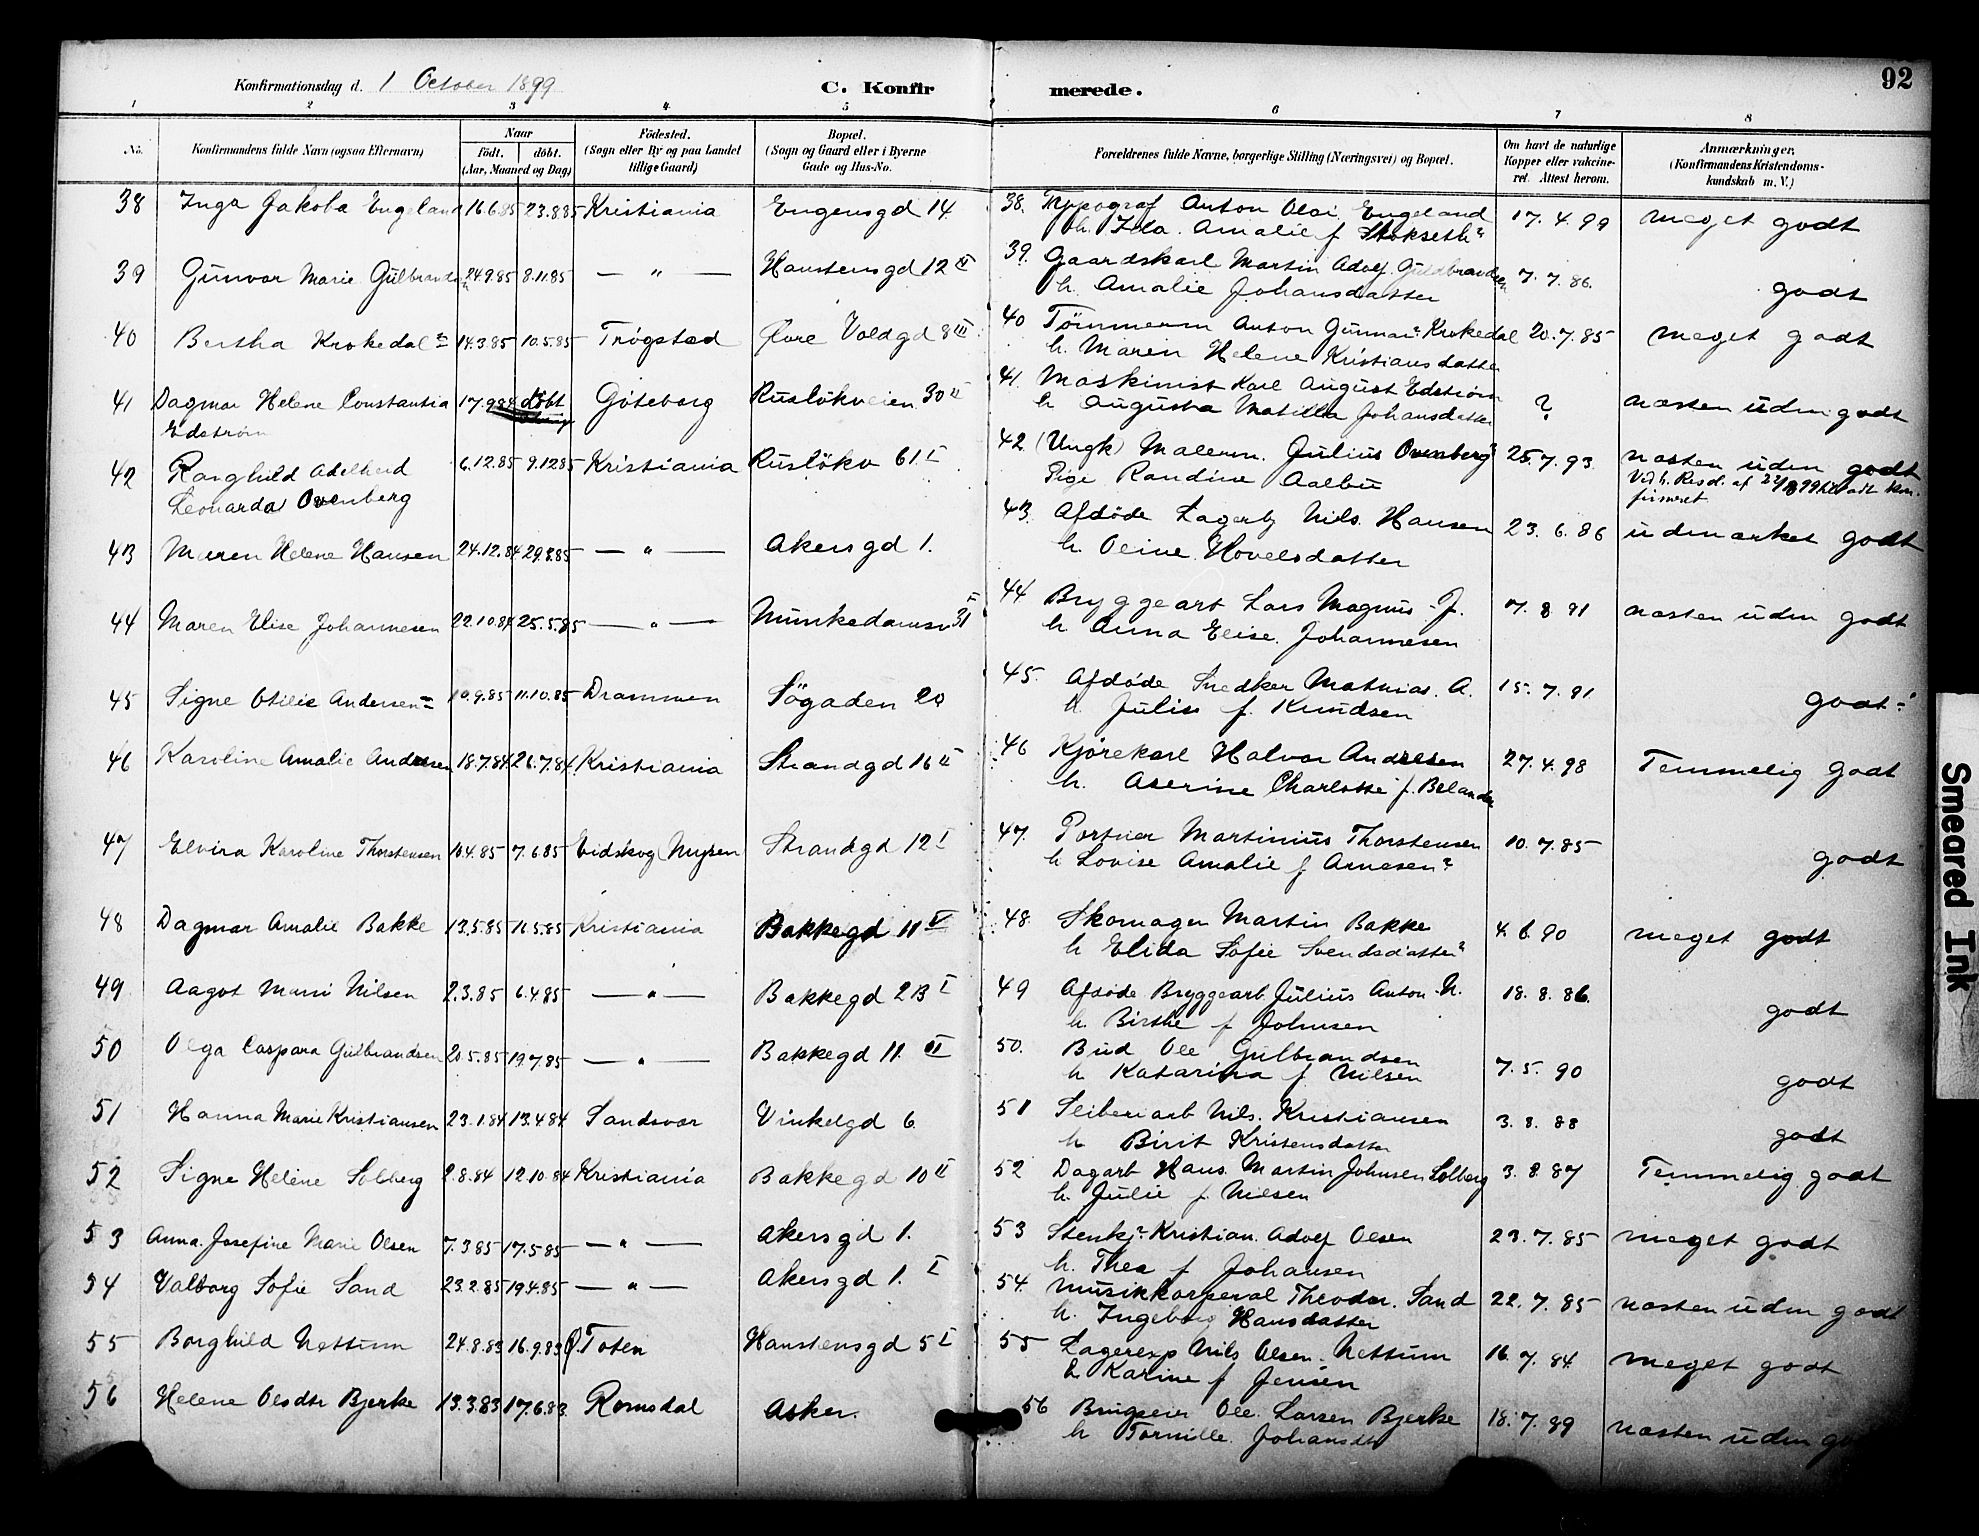 92
Konfirmationsdag d. 1 October 1899
C. Konfirmerede.
1 2 3 4 5 6 7 8
No.
Konfirmandens fulde Navn (ogsaa Efternavn)
Naar
födt. döbt.
(Aar, Maaned og Dag)
Födested.
(Sogn eller By og paa Landet
tillige Gaard)
Bopæl.
(Sogn og Gaard eller i Byerne
Gade og Hus-No.
Forældrenes fulde Navne, borgerlige Stilling (Næringsvei) og Bopæl.
Om havt de naturlige
Kopper eller vakcine-
ret. Attest herom.
Anmærkninger,
(Konfirmandens Kristendoms-
kundskab m. V.)
38 Inga Jakoba Engeland 16.6.85 23.8.85 Kristiania Eugensgd 14. 38. Typograf Anton Olai Engeland 17.4.99 meget godt
h. Ida Amalie f Stokseth
39 Gunvor Marie Gulbrandsen 24.9.85 8.11.85 — " — Haustensgd 12 IV 39. Gaardskarl Martin Adolf Guldbrandsen 7.7.86. godt
h. Amalie Johansdatter
40 Bertha Krokedal 14.3.85 10.5.85 Trøgstad Øvre Voldgd 8 III 40 Tømmerm Anton Gunnar Krokedal 20.7.85 meget godt
h. Maren Helene Kristiansdatter
41 Dagmar Helene Constantia 17.9.84 döbt Göteborg Ruslökveien 30 II 41. Maskinist Karl August Edström ? næsten uden godt
Edström h Augusta Matilda Johansdatter
42 Ranghild Adelheid 6.12.85 9.12.85 Kristiania Ruslökv 61 I 42. (Ungk) Malerm. Julius Ovenberg 25.7.93. næsten uden godt
Leonarda Ovenberg Pige Randine Aalbu Ved k. Resol. af
43 Maren Helene Hansen 24.12.84 29.3.85 — " — Akersgd 1. 43. Afdöde Lagerbj Nils Hansen 23.6.86 udmærket godt
h. Oline Hovelsdatter
44 Maren Elise Johannesen 22.10.84 25.5.85 — " — Munkedamsv 31 44 Bryggearb Lars Magnus J. 7.8 91 næsten uden godt
h Anna Elise Johannesen
45 Signe Otilie Andersen 10.9.85 11.10.85 Drammen Søgaden 20 45. Afdöde Snedker Mathias A. 15.7.91 godt
h. Julie f. Knudsen
46 Karoline Amalie Andresen 18.7.84 26.7.84 Kristiania Strandgd 16 II 46 Kjörekarl Halvor Andresen 27.4.98 Temmelig godt
h. Aserine Charlotte f.
47 Elvira Karoline Thorstensen 16.4.85 7.6.85 Eidskog Strandgd 12 I 47. Portner Martinius Thorstensen 10.7.85 godt
h Lovise Amalie f Arnesen
48 Dagmar Amalie Bakke 13.5.85 16.5.85 Kristiania Bakkegd 11 48. Skomager Martin Bakke 4.6.90 meget godt
h Elida Sofie Svendsdatter
49 Aagot Marie Nilsen 2.3.85 6.4.85 — " — Bakkegd 2B I 49 Afdöde Bryggearb. Julius Anton N. 18.8.86. godt
h. Birthe f Johnsen
50 Olga Caspara Gulbrandsen 20.5.85 19.7.85 — " — Bakkegd 11. III 50. Bud Ole Gulbrandsen 7.5.90 godt
h Katarina f Nilsen
51 Hanna Marie Kristiansen 23.1.84 13.4.84 Sandsvær Vinkelgd 6 51 Nils. Kristiansen 3.8.88 godt
h Birit Kristensdatter
52 Signe Helene Solberg 2.8.84 12.10.84 Kristiania Bakkegd 10 II 52 Dagarb Hans Martin Johnsen Solberg 3.8.87 Temmelig godt
h. Julie f. Nilsen
53 Anna Josefine Marie Olsen 7.3.85 17.5.85 — " — Akersgd 1. 53 Kristian Adolf Olsen 23.7.85 meget godt
h. Thea f Johansen
54 Valborg Sofie Sand 23.2.85 19.4.85 — " — Akersgd 1. I 54. Musikkorperal Theodor Sand 22.7.85 næsten uden godt
h. Ingeborg Hansdatter
55 Borghild Nettum 24.8.83 16.9.83 Ø. Toten Haustensgd 5 I 55 Lagerexp Nils Olsen Nettum 16.7.84 meget godt
h Karine f Jensen
56 Helene Olsdtr Bjerke 13.3.83 17.6.83. Romsdal Asker. 56 Brugseier Ole Larsen Bjerke 18.7.89 næsten uden
h Johansdtr
Smeared Ink